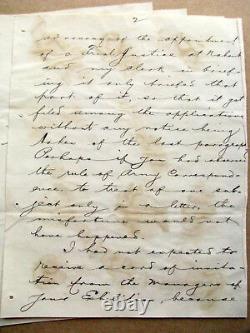 2
of a Trial Justice at Nahant
and my clerk in brief-
ing it only briefed that
part of it, so that it got
filed among the applications
without any notice being
taken of the last paragraph.
Perhaps if you had observed
the rule of Army Correspond-
ence to treat of one sub-
ject only in a letter, the
misfortune would not
have happened.
I had not expected to
receive a card of invita-
tion from the Managers of
your Exhibition, because